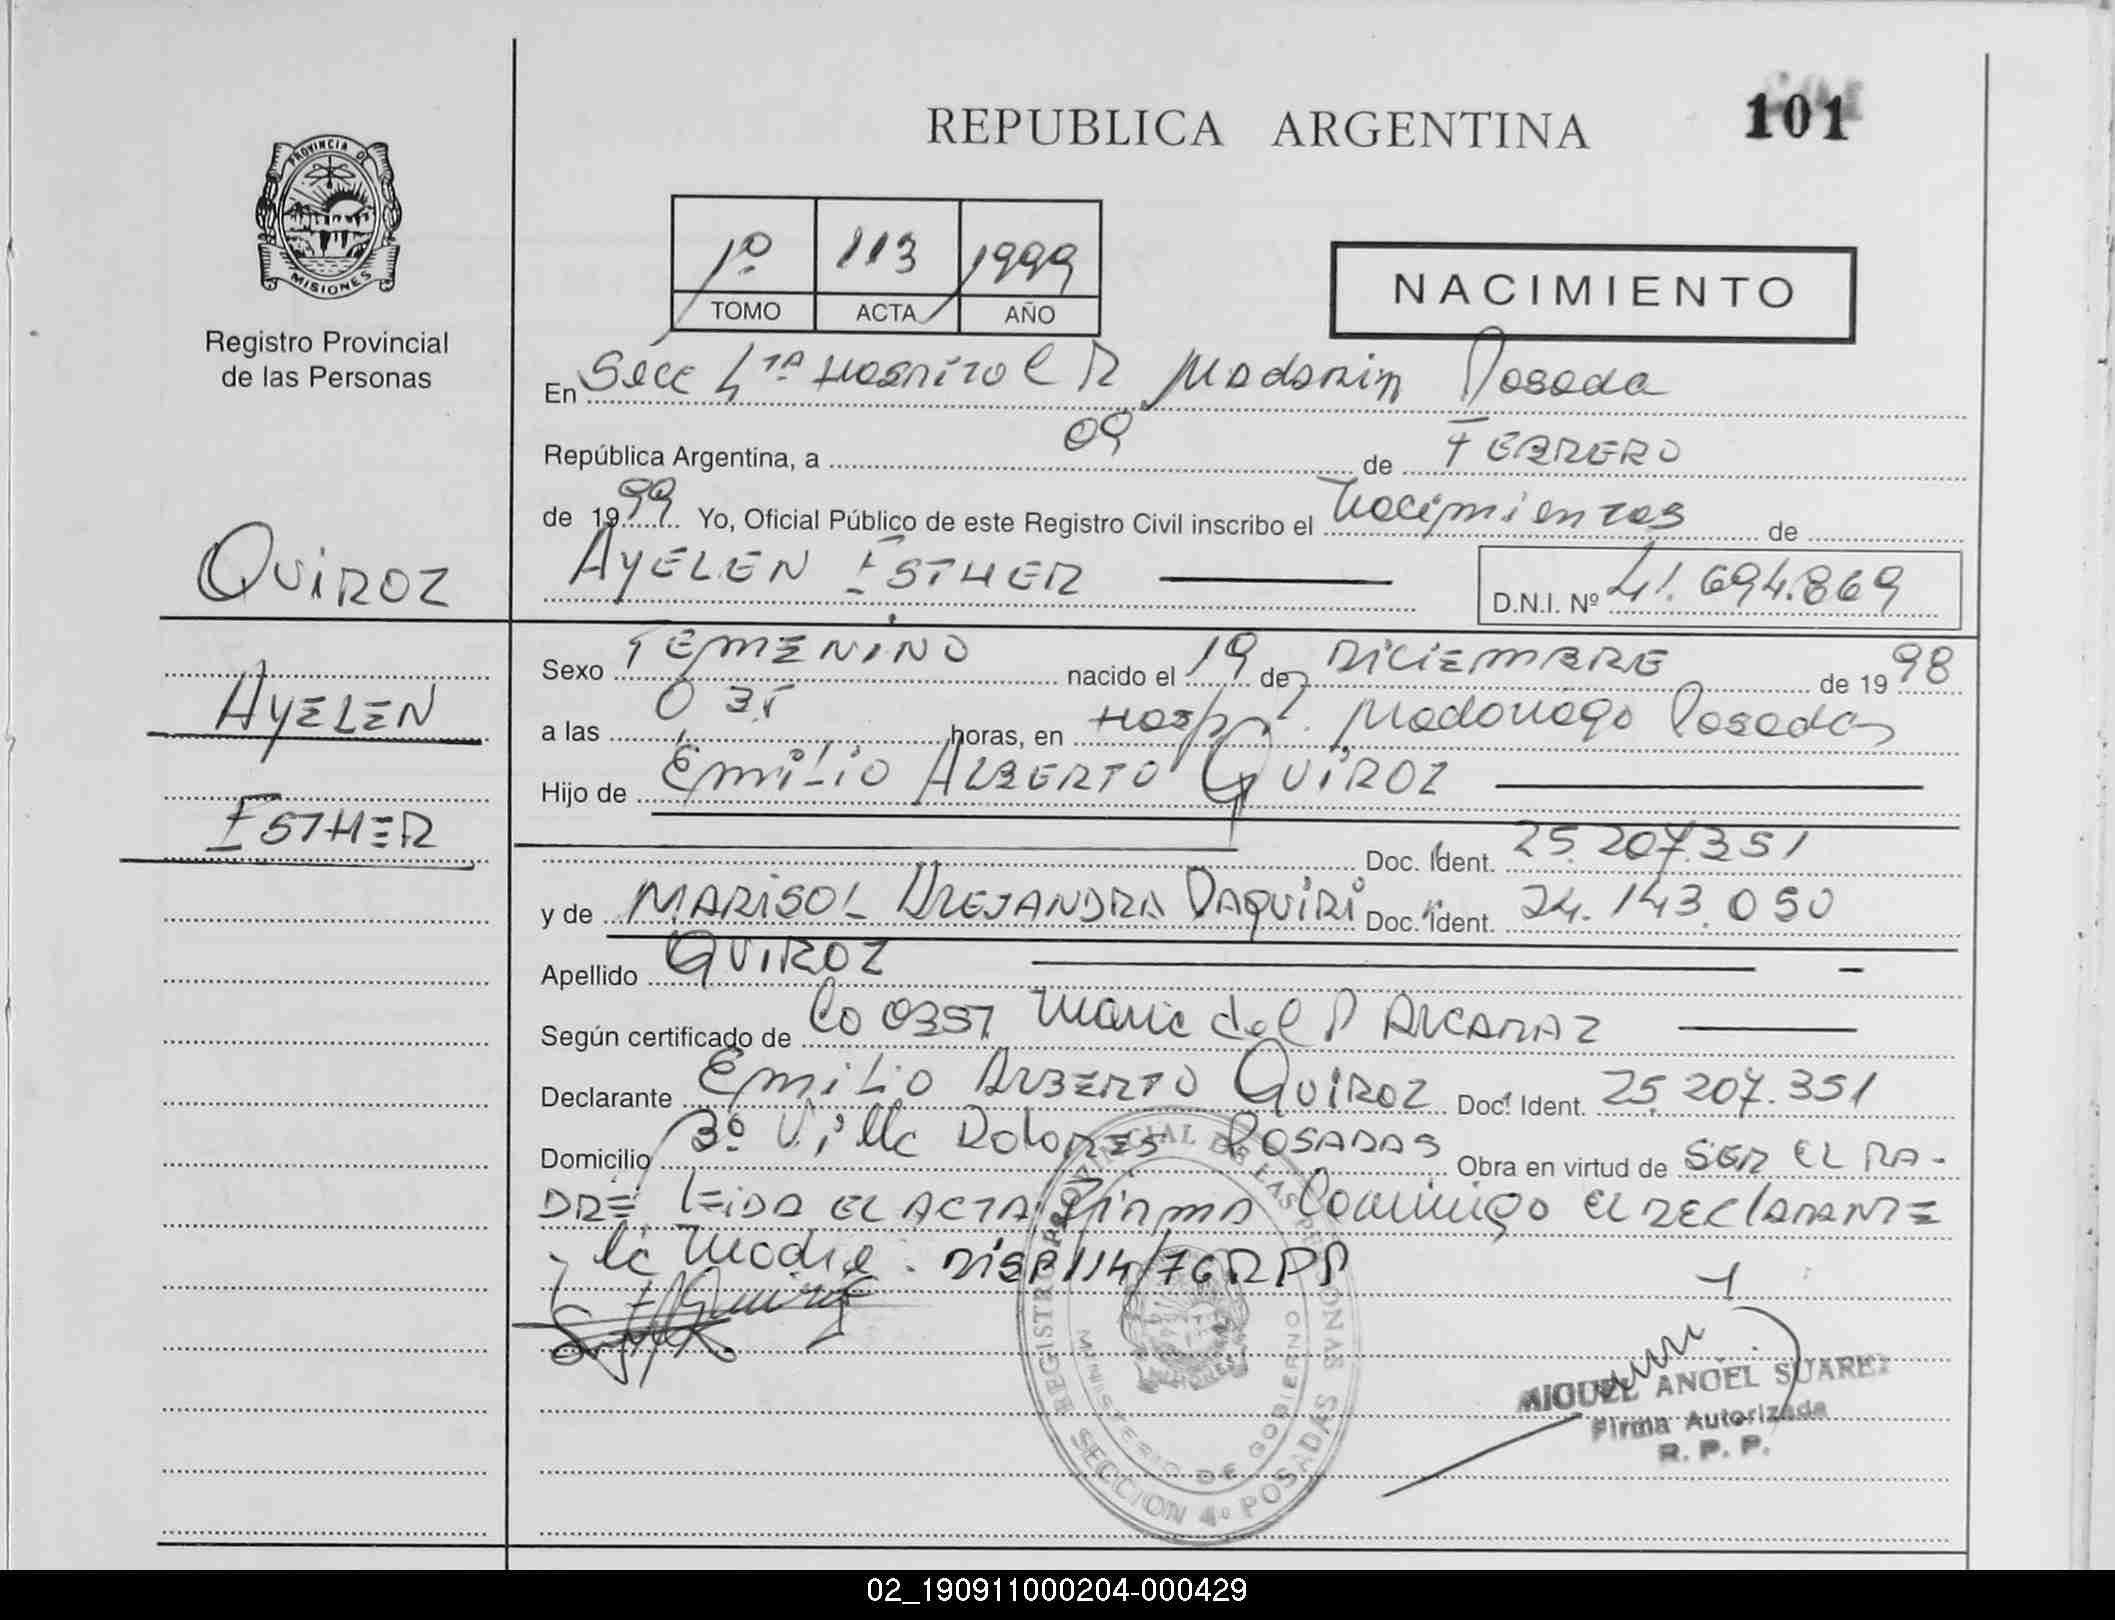 REPUBLICA ARGENTINA
101
PROVINCIA DE
MISIONES
Registro Provincial
de las Personas
1º 113 1999
TOMO ACTA AÑO
NACIMIENTO
En Secc 4ta Hospital R Madarin Posada
República Argentina, a 09 de FEBRERO
de 1999 Yo, Oficial Público de este Registro Civil inscribo el Nacimientos de
AYELEN ESTHER
D.N.I. Nº 41.694.869
QUIROZ
AYELEN
ESTHER
Sexo FEMENINO nacido el 19 de DICIEMBRE de 1998
a las 0 35 horas, en Hosp. Madariaga Posadas
Hijo de EMILIO ALBERTO QUIROZ
Doc. Ident. 25.207.351
y de MARISOL ALEJANDRA DAQUIRI Doc. Ident. 24.143.050
Apellido QUIROZ
Según certificado de Co 0357 Maria del P ALCARAZ
Declarante EMILIO ALBERTO QUIROZ Doc. Ident. 25.207.351
Domicilio Bº Villa DOLORES POSADAS Obra en virtud de SER EL PA-
DRE. LEIDA EL ACTA Firma Conmigo EL DECLARANTE
y la Madre. DISP 114/76 RPP
REGISTRO PROVINCIAL DE LAS PERSONAS
MINISTERIO DE GOBIERNO
SECCION 4º POSADAS
MIGUEL ANGEL SUAREZ
Firma Autorizada
R. P. P.
02_190911000204-000429